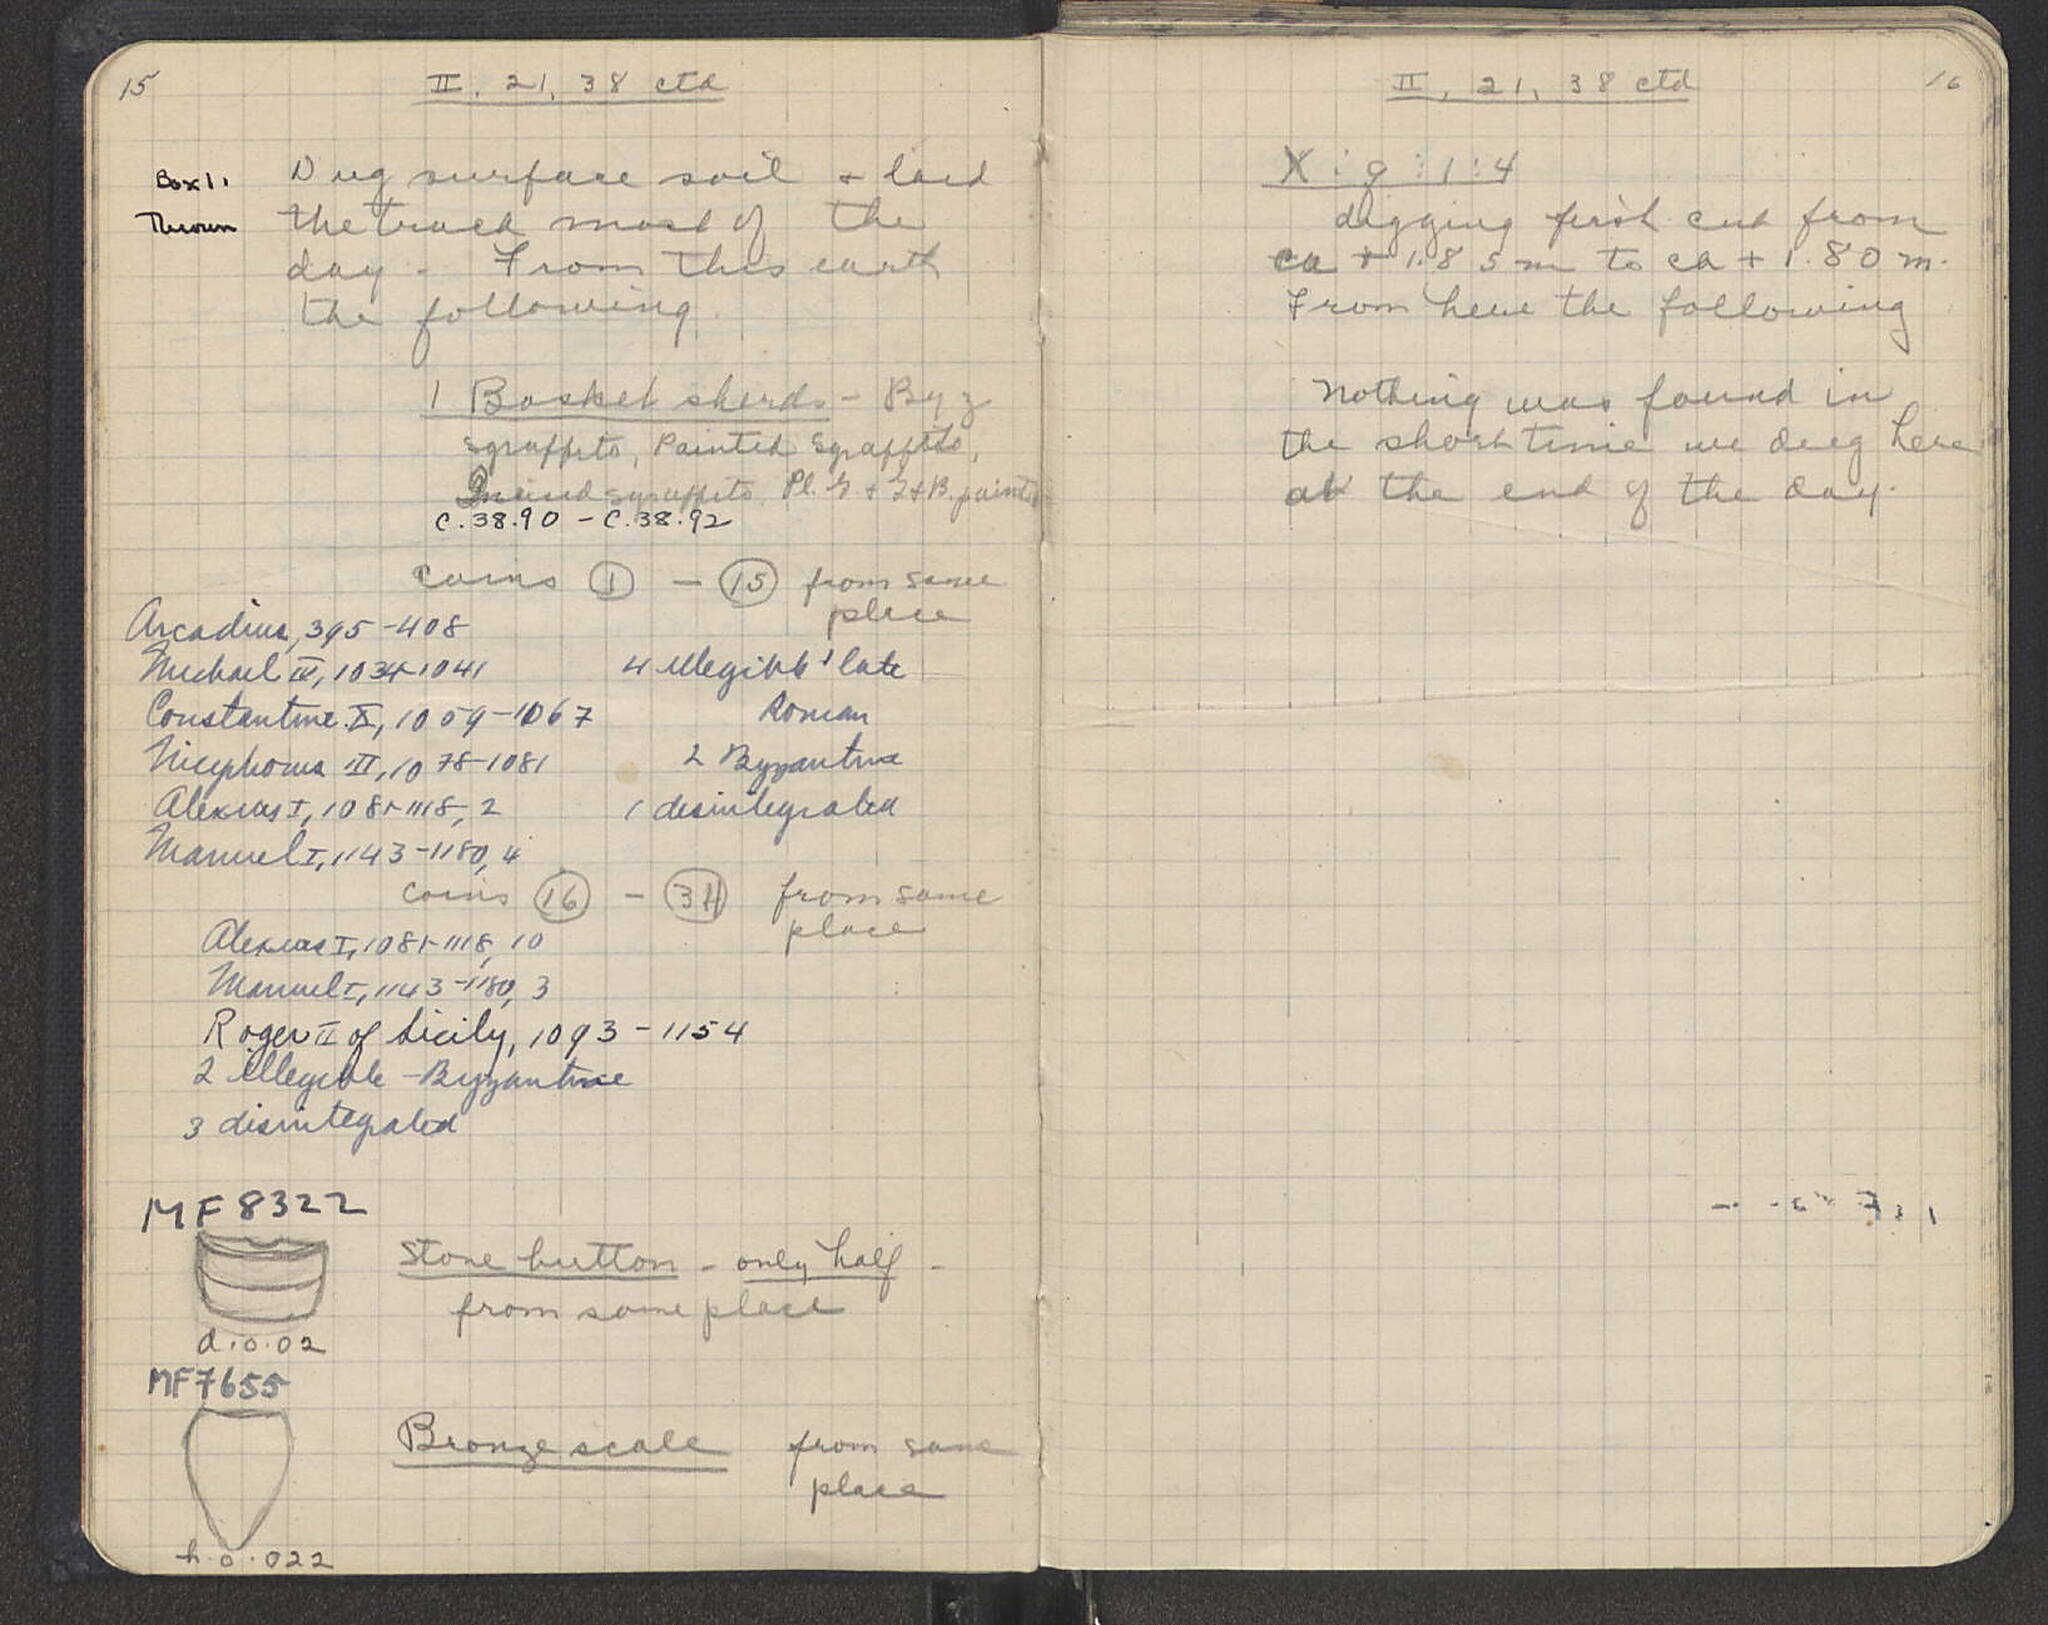 15
II. 21. 38 ctd
Box 1.
Thrown
Dug surface soil + laid
the track most of the
day - From this earth
the following.
1 Basket sherds - Byz
sgraffito, Painted Sgraffito,
Incised sgraffito, Pl. G + G+B. painted
C.38.90 - C.38.92
coins 1 - 15 from same
place
Arcadius, 395-408
Michael IV, 1034-1041
Constantine X, 1059-1067
Nicephorus III, 1078-1081
Alexius I, 1081-1118, 2
Manuel I, 1143-1180, 4
4 illegible late
Roman
2 Byzantine
1 disintegrated
coins 16 - 34 from same
place
Alexius I, 1081-1118, 10
Manuel I, 1143-1180, 3
Roger II of Sicily, 1093-1154
2 illegible - Byzantine
3 disintegrated
MF 8322
Stone button - only half -
from same place
d. 0.02
MF 7655
Bronze scale from same
place
h. 0.022
II, 21, 38 ctd
16
X : g : 1 : 4
digging first cut from
ca + 1.85 m to ca + 1.80 m.
From here the following
Nothing was found in
the short time we dug here
at the end of the day.